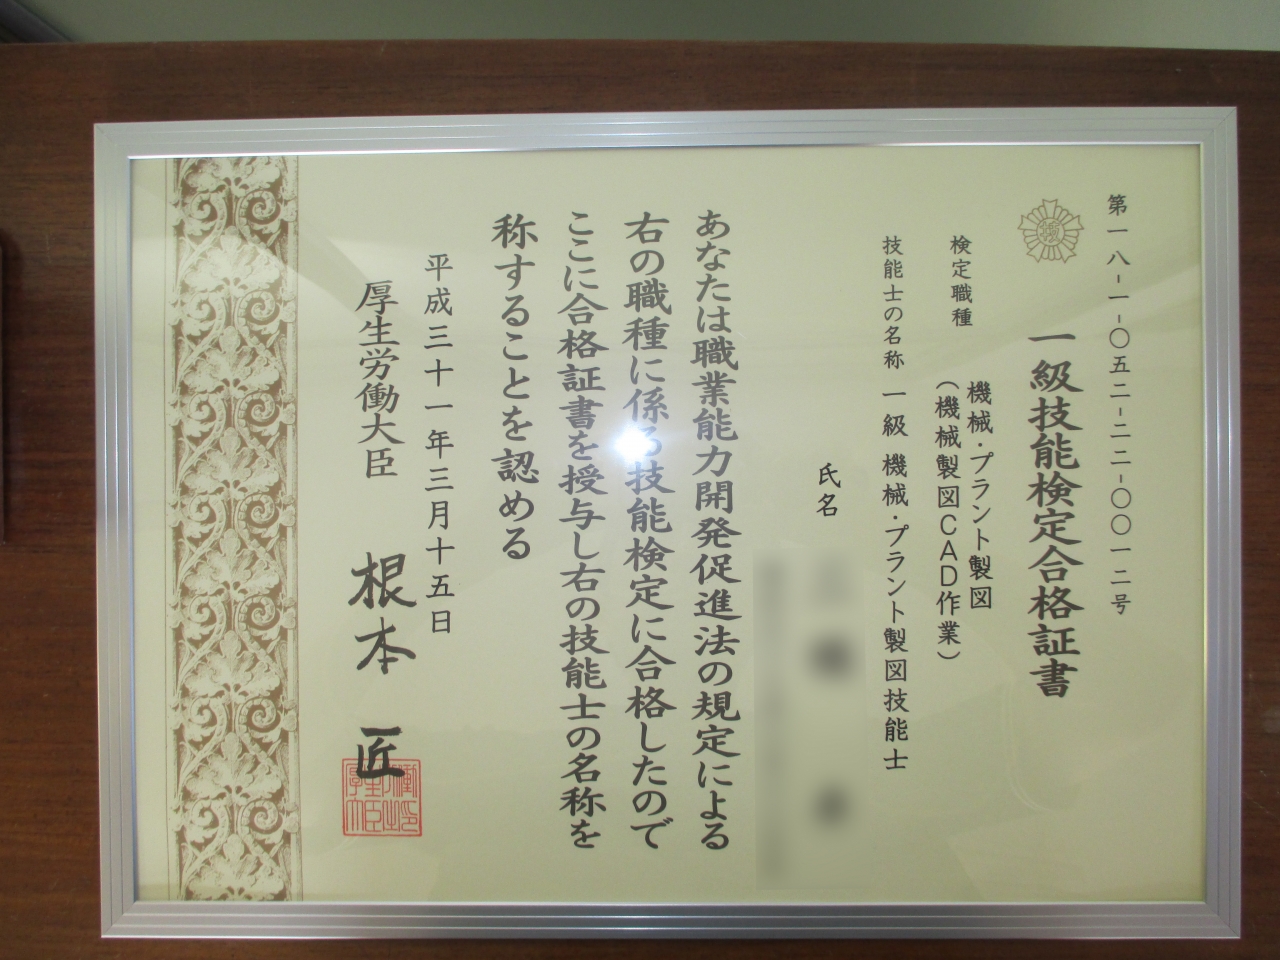 第一八-一-〇五二-二二-〇〇一二号
一級技能検定合格証書
検定職種
機械・プラント製図
（機械製図CAD作業）
技能士の名称 一級 機械・プラント製図技能士
氏名
あなたは職業能力開発促進法の規定による
右の職種に係る技能検定に合格したので
ここに合格証書を授与し右の技能士の名称を
称することを認める
平成三十一年三月十五日
厚生労働大臣 根本 匠